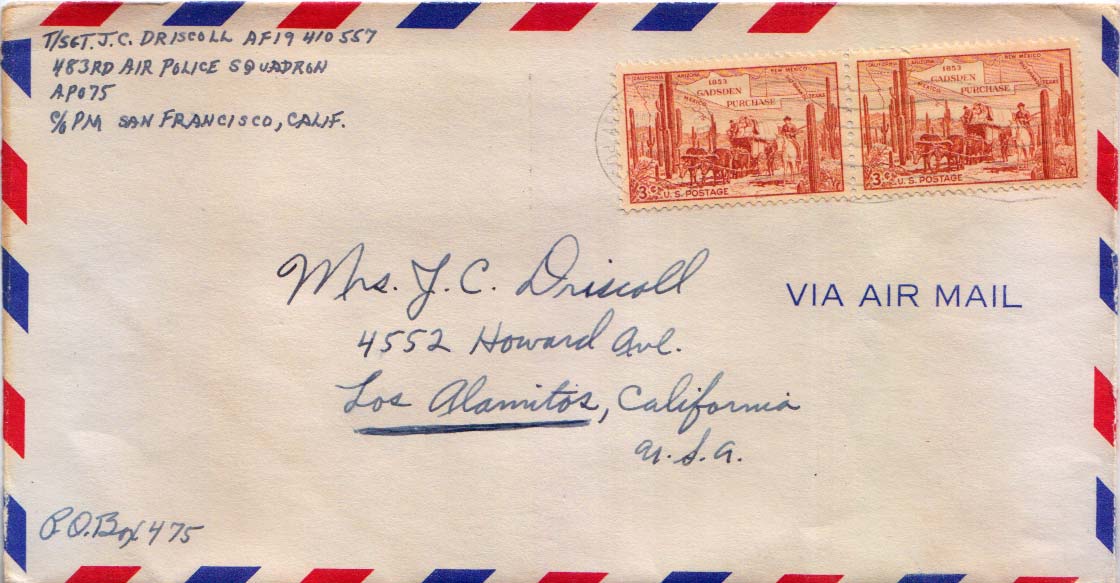 T/SGT. J.C. DRISCOLL AF19 410 557
483RD AIR POLICE SQUADRON
APO 75
C/O PM SAN FRANCISCO, CALIF.
CALIFORNIA ARIZONA NEW MEXICO
1853
GADSDEN
PURCHASE
MEXICO
TEXAS
3¢ U.S. POSTAGE
CALIFORNIA ARIZONA NEW MEXICO
1853
GADSDEN
PURCHASE
MEXICO
TEXAS
3¢ U.S. POSTAGE
Mrs. J. C. Driscoll
VIA AIR MAIL
4552 Howard Ave.
Los Alamitos, California
U.S.A.
P.O. Box 475